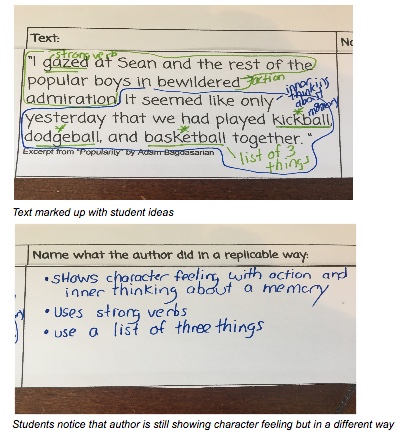 Text:
No
strong verb
"I gazed at Sean and the rest of the
popular boys in bewildered action
admiration. It seemed like only
inner
thinking
about
memory
yesterday that we had played kickball,
dodgeball, and basketball together."
Excerpt from "Popularity" by Adam Bagdasarian
list of 3
things
Text marked up with student ideas
Name what the author did in a replicable way:
• shows character feeling with action and
inner thinking about a memory
• Uses strong verbs
• use a list of three things
Students notice that author is still showing character feeling but in a different way